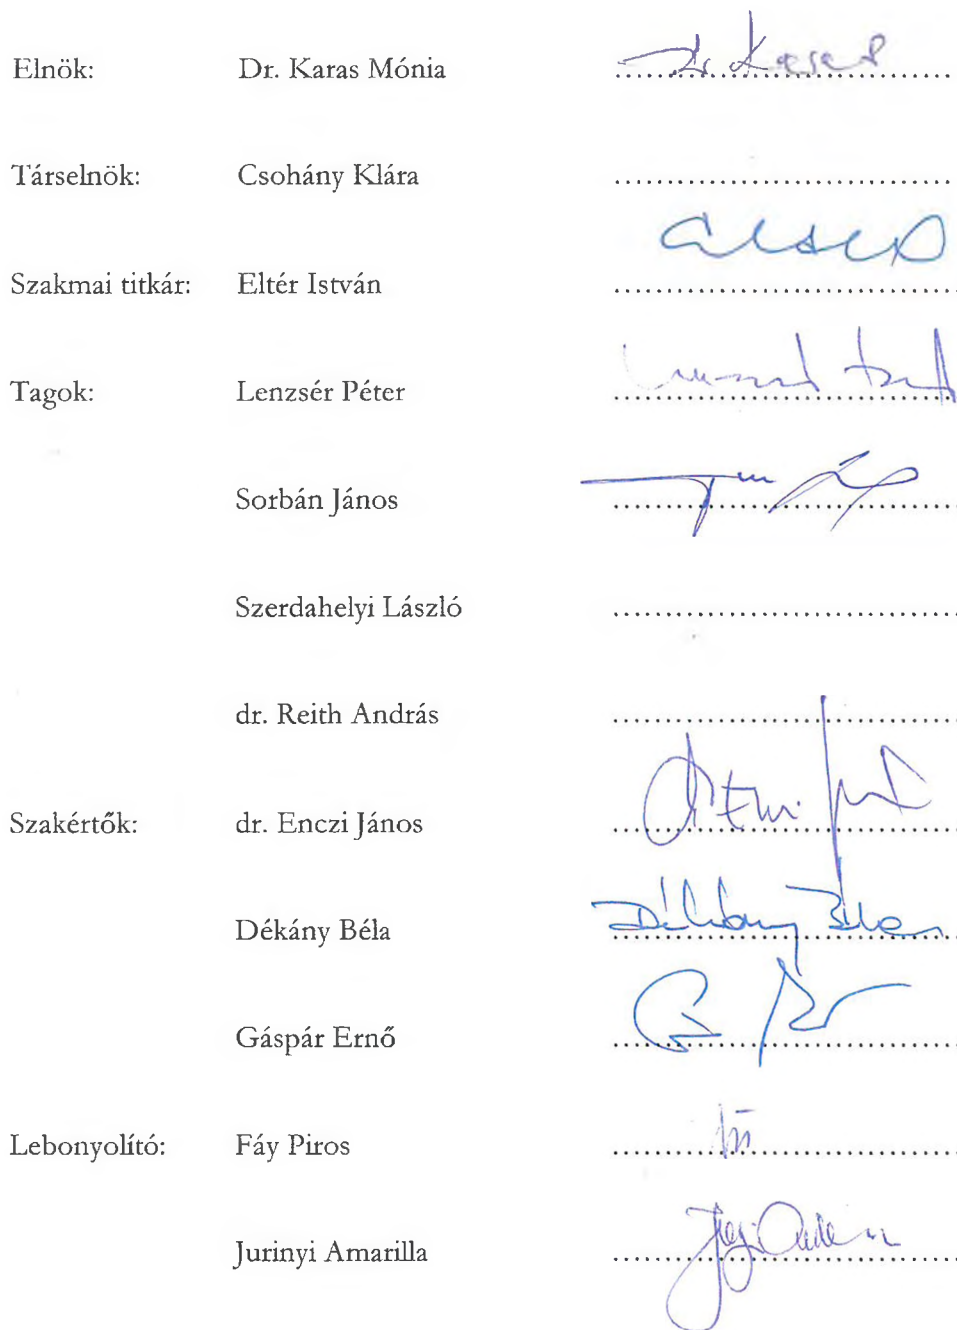 Elnök: Dr. Karas Mónia Dr. Karas
Társelnök: Csohány Klára
Szakmai titkár: Eltér István
Tagok: Lenzsér Péter
Sorbán János
Szerdahelyi László
dr. Reith András
Szakértők: dr. Enczi János
Dékány Béla Dékány Béla
Gáspár Ernő
Lebonyolító: Fáy Piros
Jurinyi Amarilla